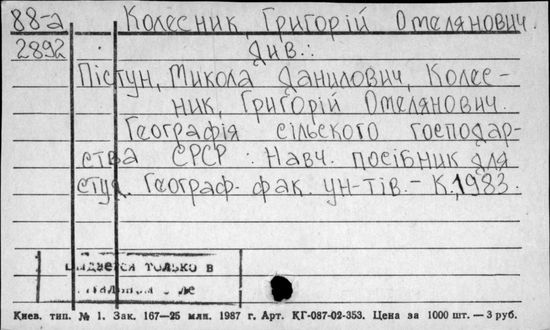 88-а Колесник, Григорій Омелянович
2892 див.:
Пістун, Микола Данилович, Колес-
ник, Григорій Омелянович.
Географія сільского господар-
ства СРСР : Навч. посібник для
студ. Географ. фак. ун-тів. – К., 1983.
выдается только в
Киев. тип. № 1. Зак. 167—25 млн. 1987 г. Арт. КГ-087-02-353. Цена за 1000 шт. — 3 руб.